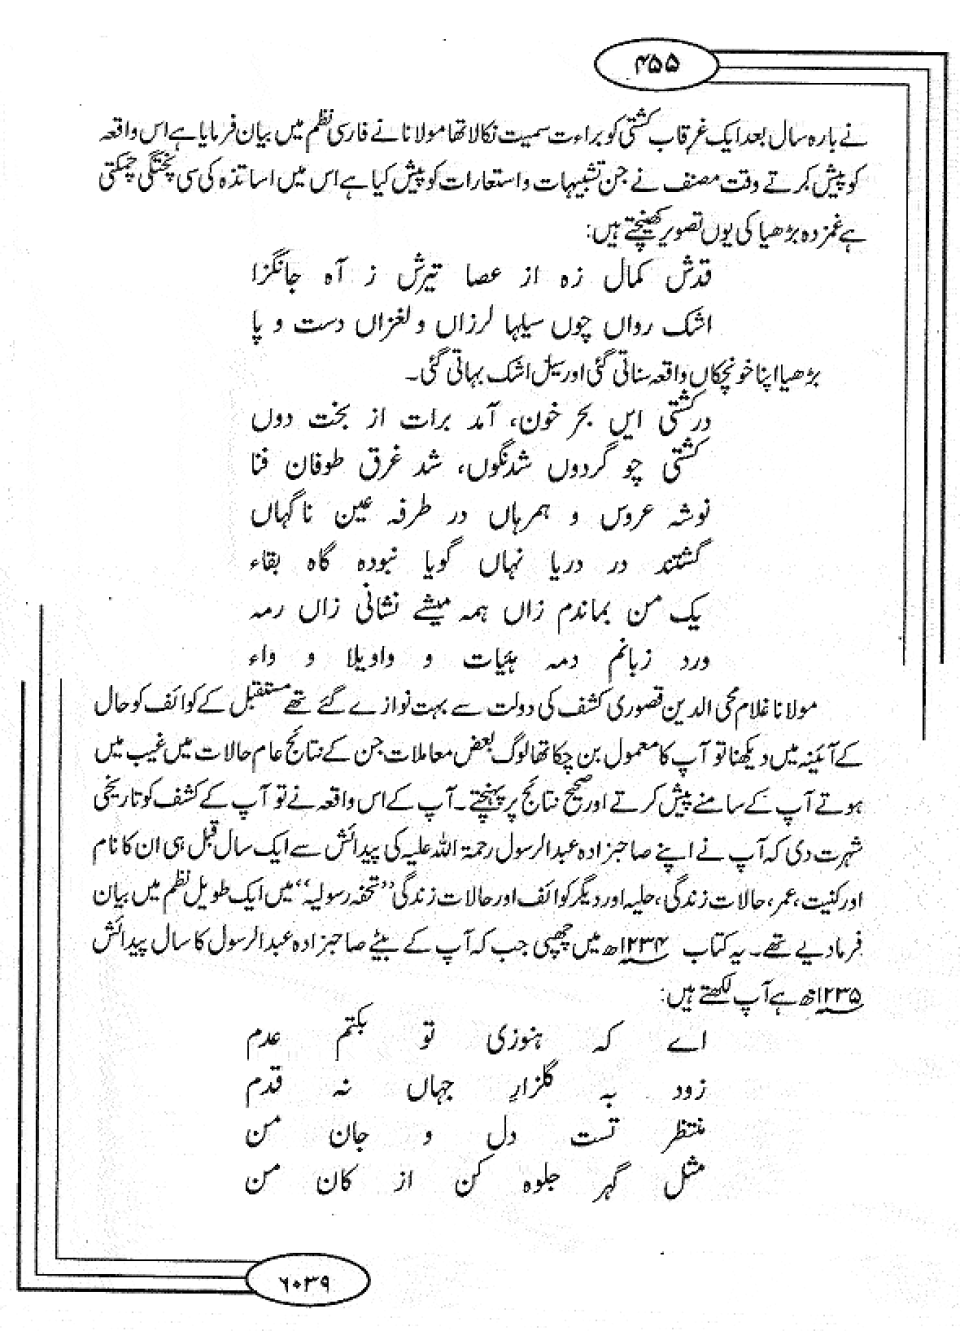 ۴۵۵
نے بارہ سال بعد ایک غرقاب کشتی کو براءت سمیت نکالا تھا مولانا نے فارسی نظم میں بیان فرمایا ہے اس واقعہ
کو پیش کرتے وقت مصنف نے جن تشبیہات و استعارات کو پیش کیا ہے اس میں اساتذہ کی سی پختگی چمکتی
ہے غمزدہ بڑھیا کی یوں تصویر کھینچتے ہیں:
قدش کمال زہ از عصا تیرش ز آہ جانگزا
اشک رواں چوں سیلہا لرزاں و لغزاں دست و پا
بڑھیا اپنا خونچکاں واقعہ سناتی گئی اور سیل اشک بہاتی گئی۔
در کشتی ایں بحر خون، آمد برات از بخت دوں
کشتی چو گردوں شدنگوں، شد غرق طوفان فنا
نوشہ عروس و ہمرہاں در طرفہ عین ناگہاں
گشتند در دریا نہاں گویا نبودہ گاہ بقاء
یک من بماندم زاں ہمہ میشے نشانی زاں رمہ
ورد زبانم دمہ ہئیات و واویلا و واء
مولانا غلام محی الدین قصوری کشف کی دولت سے بہت نوازے گئے تھے مستقبل کے کوائف کو حال
کے آئینہ میں دیکھنا تو آپ کا معمول بن چکا تھا لوگ بعض معاملات جن کے نتائج عام حالات میں غیب میں
ہوتے آپ کے سامنے پیش کرتے اور صحیح نتائج پر پہنچتے۔ آپ کے اس واقعہ نے تو آپ کے کشف کو تاریخی
شہرت دی کہ آپ نے اپنے صاحبزادہ عبدالرسول رحمۃ اللہ علیہ کی پیدائش سے ایک سال قبل ہی ان کا نام
اور کنیت، عمر، حالات زندگی، حلیہ اور دیگر کوائف اور حالات زندگی ’’تحفہ رسولیہ‘‘ میں ایک طویل نظم میں بیان
فرما دیے تھے۔ یہ کتاب ۱۲۳۴ھ میں چھپی جب کہ آپ کے بیٹے صاحبزادہ عبدالرسول کا سال پیدائش
۱۲۳۵ھ ہے آپ لکھتے ہیں:
اے کہ ہنوزی تو بکتم عدم
زود بہ گلزارِ جہاں نہ قدم
منتظر تست دل و جان من
مثل گہر جلوہ کن از کان من
۶۰۳۹